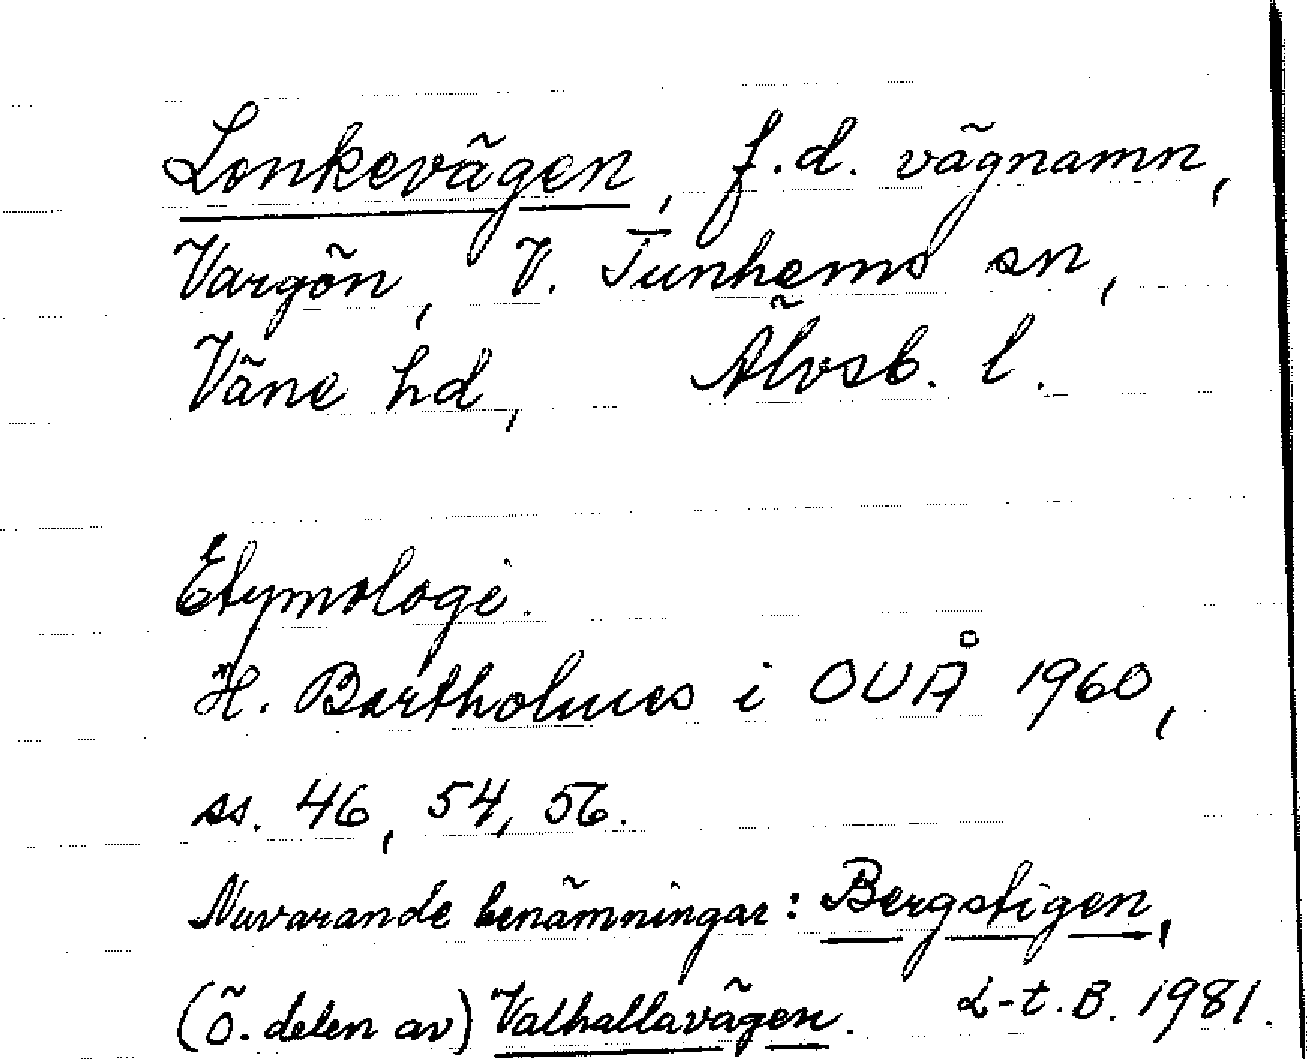 Lonkevägen, f.d. vägnamn,
Vargön, V. Tunhems sn,
Väne hd, Älvsb. l.
Etymologi.
H. Bartholmes i OUÅ 1960,
ss. 46, 54, 56.
Nuvarande benämningar: Bergstigen,
(ö. delen av) Valhallavägen. L-t. B. 1981.